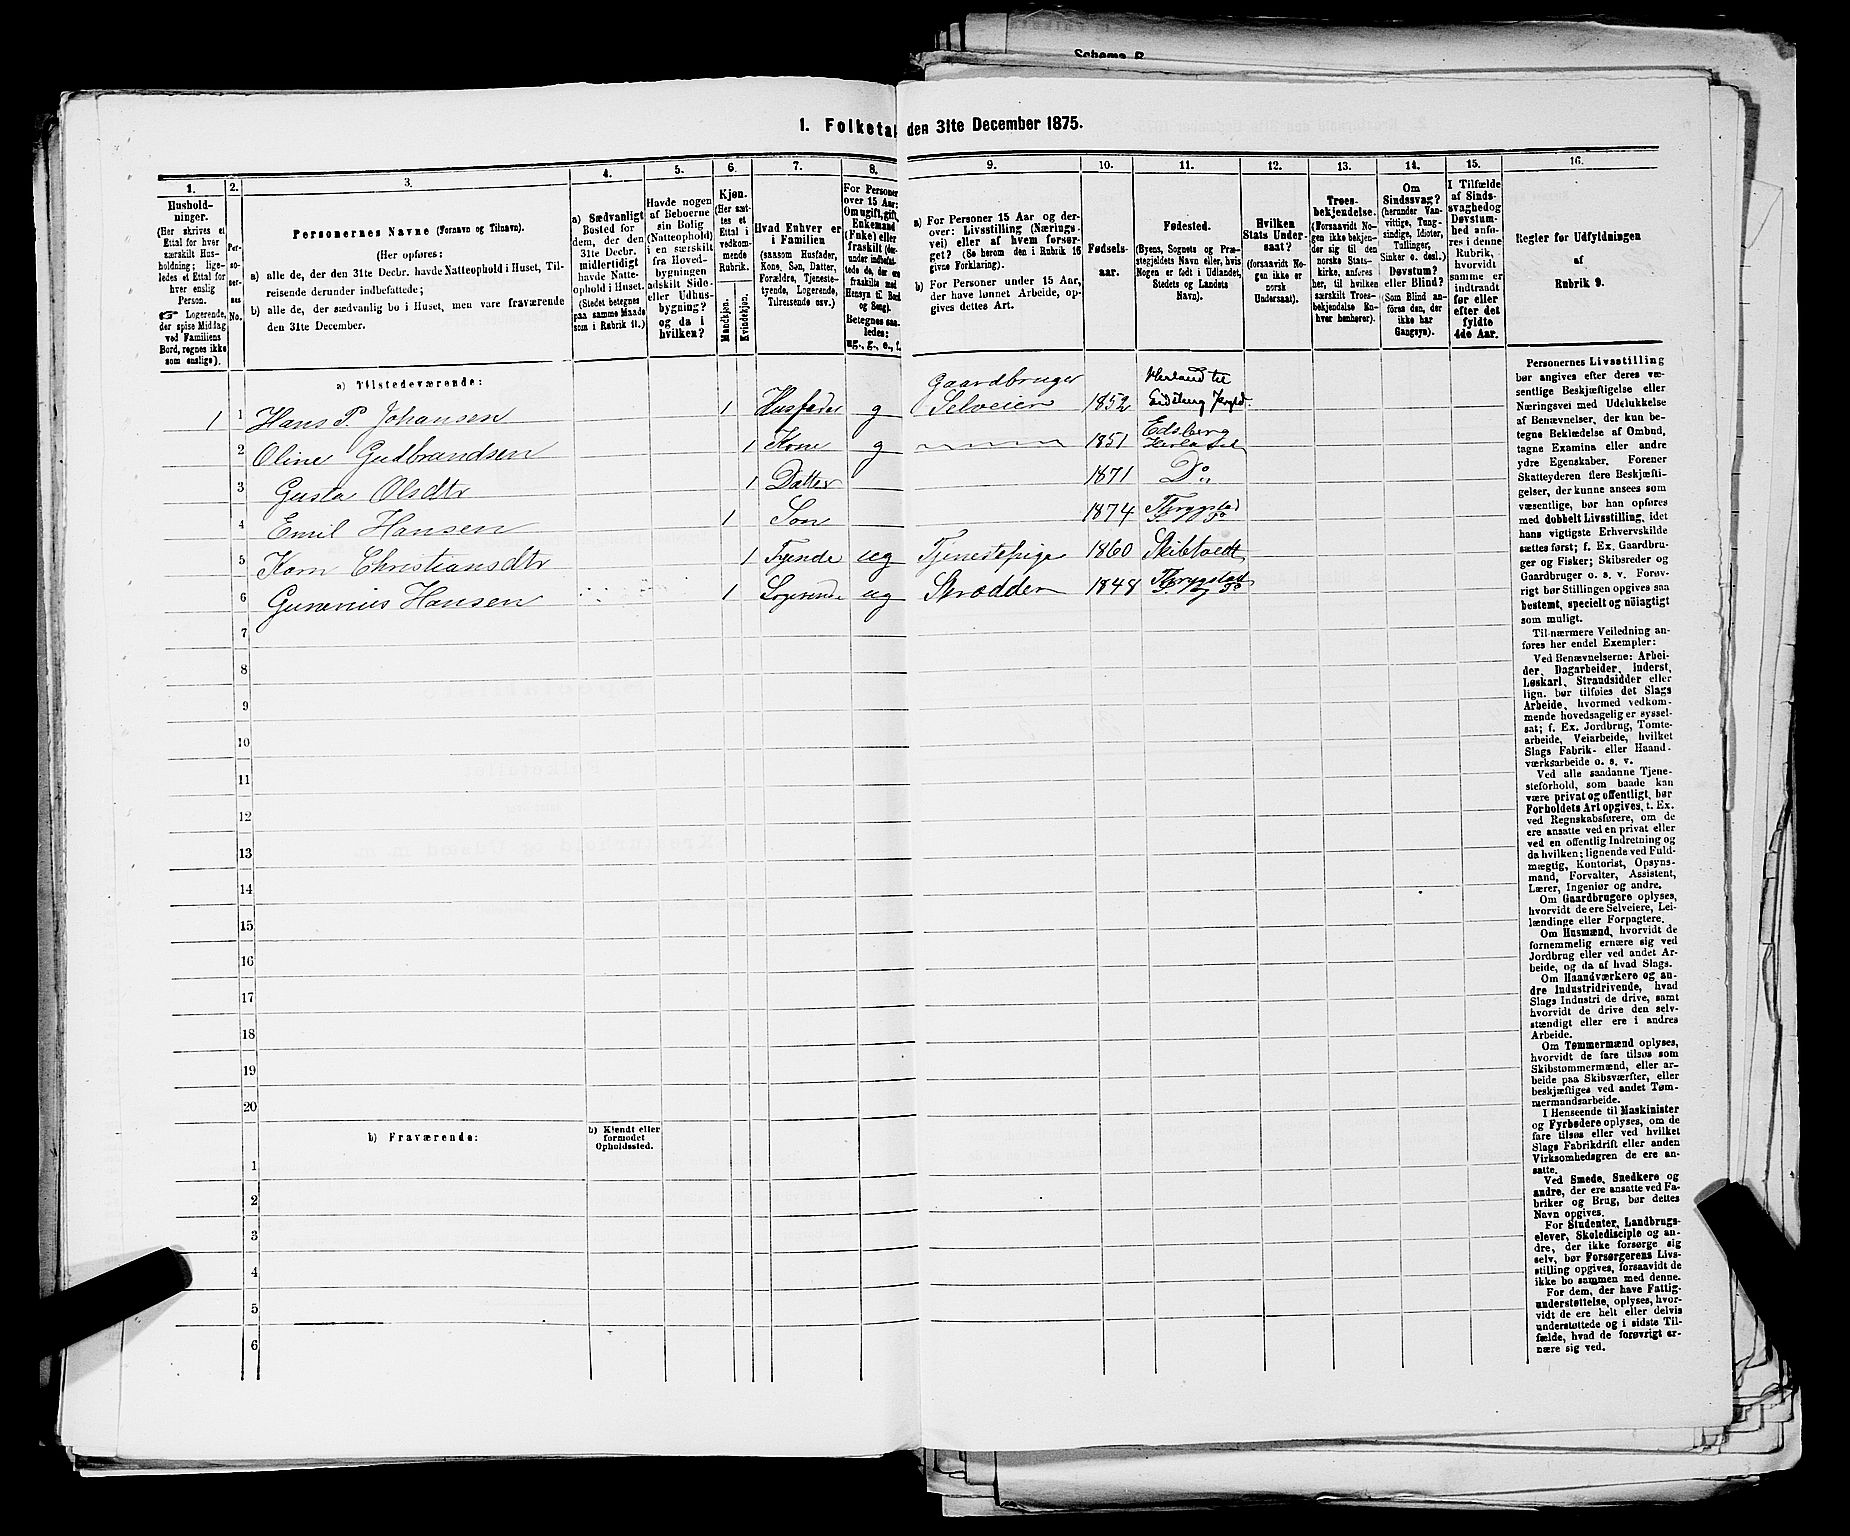 Schema B
1. Folketal den 31te December 1875.
1.
2.
3.
4.
5.
6.
7.
8.
9.
10.
11.
12.
13.
14.
15.
16.
Hushold-
ninger.
(Her skrives et
Ettal for hver
særskilt Hus-
holdning; lige-
ledes et Ettal for
hver enslig
Person.
☞ Logerende,
der spise Middag
ved Familiens
Bord, regnes ikke
som enslige).
Per-
so-
ner-
nes
No.
Personernes Navne (Fornavn og Tilnavn).
(Her opføres:
a) alle de, der den 31te Decbr. havde Natteophold i Huset, Til-
reisende derunder indbefattede;
b) alle de, der sædvanlig bo i Huset, men vare fraværende
den 31te December.
a) Sædvanligt
Bosted for
dem, der den
31te Decbr.
midlertidigt
havde Natte-
ophold i Huset.
(Stedet betegnes
paa samme Maade
som i Rubrik 11.)
Havde nogen
af Beboerne
sin Bolig
(Natteophold)
i en særskilt
fra Hoved-
bygningen
adskilt Side-
eller Udhus-
bygning?
og da i
hvilken?
Kjøn.
(Her sæt-
tes et
Ettal i
vedkom-
mende
Rubrik.
Mandkjøn.
Kvindekjøn.
Hvad Enhver er
i Familien
(saasom Husfader,
Kone, Søn, Datter,
Forældre, Tjeneste-
tyende, Logerende,
Tilreisende osv.)
For Personer
over 15 Aar:
Om ugift, gift,
Enkemand
(Enke) eller
fraskilt (der-
under indbefat-
tede de, der ere
fraskilte med
Hensyn til Bord
og Seng).
Betegnes saa-
ledes:
ug., g., e., f.
a) For Personer 15 Aar og der-
over: Livsstilling (Nærings-
vei) eller af hvem forsør-
get? (Se herom den i Rubrik 16
givne Forklaring).
b) For Personer under 15 Aar,
der have lønnet Arbeide, op-
gives dettes Art.
Fødsels-
aar.
Fødested.
(Byens, Sognets og Præ-
stegjeldets Navn eller, hvis
Nogen er født i Udlandet,
Stedets og Landets
Navn).
Hvilken
Stats Under-
saat?
(forsaavidt No-
gen ikke er
norsk
Undersaat).
Troes-
bekjendelse.
(Forsaavidt No-
gen ikke bekjen-
der sig til den
norske Stats-
kirke, anføres
her, til hvilken
særskilt Troes-
bekjendelse En-
hver henhører).
Om
Sindssvag?
(herunder Van-
vittige, Tung-
sindige, Idioter,
Tullinger,
Sinker o. desl.)
Døvstum?
eller Blind?
(Som Blind an-
føres den, der
ikke har
Gangsyn).
I Tilfælde
af Sinds-
svaghed og
Døvstum-
hed anfø-
res i denne
Rubrik,
hvorvidt
samme er
indtraadt
før eller
efter det
fyldte
4de Aar.
Regler for Udfyldningen
af
Rubrik 9.
a) Tilstedeværende:
1 1 Hans P. Johansen 1 Husfader g Gaardbruger Selveier 1852
2 Oline Gudbrandsen 1 Kone g 1851 Edsberg
3 Gusta Olsdtr 1 Datter 1871 Do
4 Emil Hansen 1 Søn 1874 Thrygstad Do
5 Karn Christiansdtr 1 Tyende ug Tjenestepige 1860
6 Gunerius Hansen 1 Logerende ug Skrædder 1848 Thrygstad Do
7
8
9
10
11
12
13
14
15
16
17
18
19
20
b) Fraværende:
b) Kjendt eller
formodet
Opholdssted.
1
2
3
4
5
6
Personernes Livsstilling
bør angives efter deres væ-
sentlige Beskjæftigelse eller
Næringsvei med Udelukkelse
af Benævnelser, der kun be-
tegne Beklædelse af Ombud,
tagne Examina eller andre
ydre Egenskaber. Forener
Skatteyderen flere Beskjæfti-
gelser, der kunne ansees som
væsentlige, bør han opføres
med dobbelt Livsstilling, idet
hans vigtigste Erhvervskilde
sættes først; f. Ex. Gaardbru-
ger og Fisker; Skibsreder og
Gaardbruger o. s. v. Forøv-
rigt bør Stillingen opgives saa
bestemt, specielt og nøiagtigt
som muligt.
Til nærmere Veiledning an-
føres her endel Exempler:
Ved Benævnelserne: Arbei-
der, Dagarbeider, Inderst,
Løskarl, Strandsidder eller
lign. bør tilføies det Slags
Arbeide, hvormed vedkom-
mende hovedsagelig er syssel-
sat; f. Ex. Jordbrug, Tomte-
arbeide, Veiarbeide, hvilket
Slags Fabrik- eller Haand-
værksarbeide o. s. v.
Ved alle saadanne Tjene-
steforhold, som baade kan
være privat og offentligt, bør
Forholdets Art opgives, t. Ex.
ved Regnskabsførere, om de
ere ansatte ved en privat eller
ved en offentlig Indretning og
da hvilken; lignende ved Fuld-
mægtig, Kontorist, Opsyns-
mand, Forvalter, Assistent,
Lærer, Ingeniør og andre.
Om Gaardbrugere oplyses,
hvorvidt de ere Selveiere, Lei-
lændinge eller Forpagtere.
Om Husmænd, hvorvidt de
fornemmelig ernære sig ved
Jordbrug eller ved andet Ar-
beide, og da af hvad Slags.
Om Haandværkere og an-
dre Industridrivende, hvad
Slags Industri de drive, samt
hvorvidt de drive den selv-
stændigt eller ere i andres
Arbeide.
Om Tømmermænd oplyses,
hvorvidt de fare tilsøs som
Skibstømmermænd, eller ar-
beide paa Skibsværfter, eller
beskjæftiges ved andet Tøm-
mermandsarbeide.
I Henseende til Maskinister
og Fyrbødere oplyses, om de
fare tilsøs eller ved hvilket
Slags Fabrikdrift eller anden
Virksomhedsgren de ere an-
satte.
Ved Smede, Snedkere og
andre, der ere ansatte ved Fa-
briker og Brug, bør dettes
Navn opgives.
For Studenter, Landbrugs-
elever, Skoledisciple og an-
dre, der ikke forsørge sig
selv, bør Forsørgerens Livs-
stilling opgives, forsaavidt de
ikke bo sammen med denne.
For dem, der have Fattig-
understøttelse, oplyses, hvor-
vidt de ere helt eller delvis
understøttede og i sidste Til-
fælde, hvad de forøvrigt er-
nære sig ved.